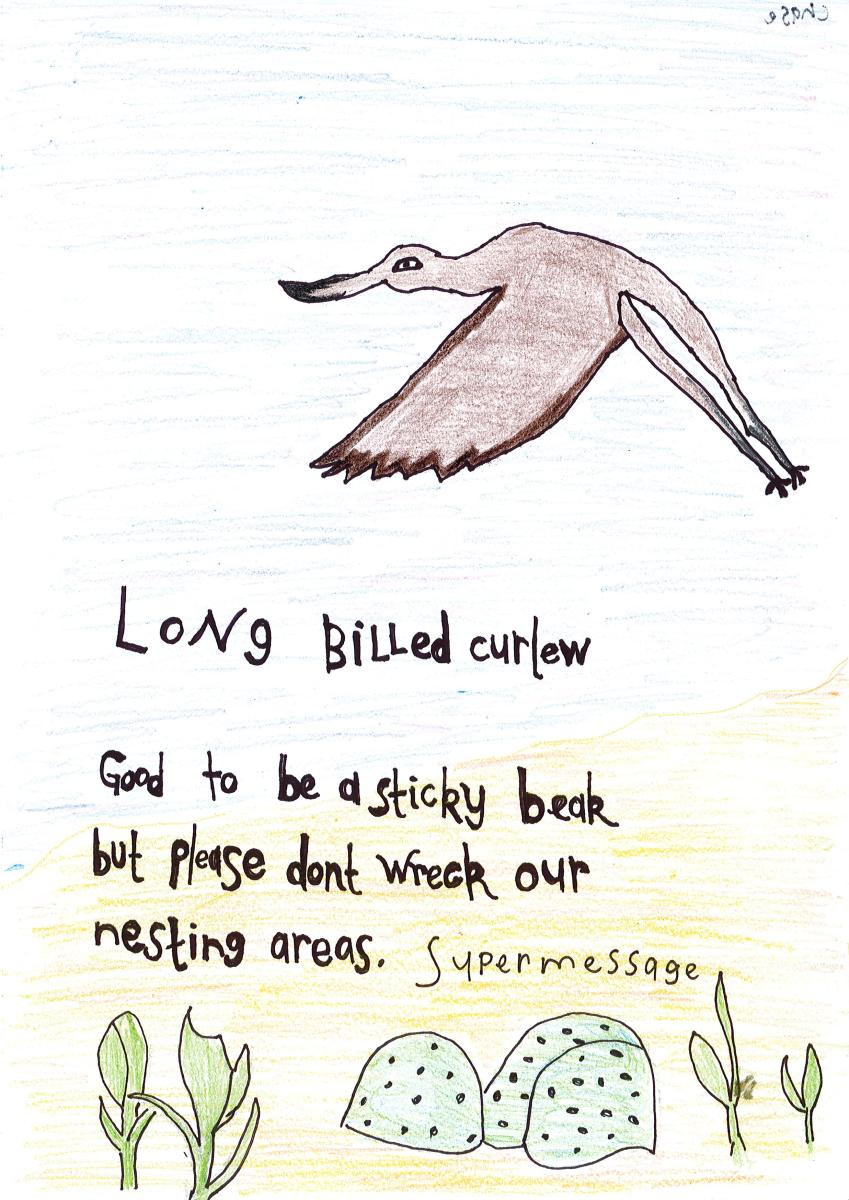 chase
LoNg BiLLed curlew
Good to be a sticky beak
but please dont wreck our
nesting areas. Supermessage